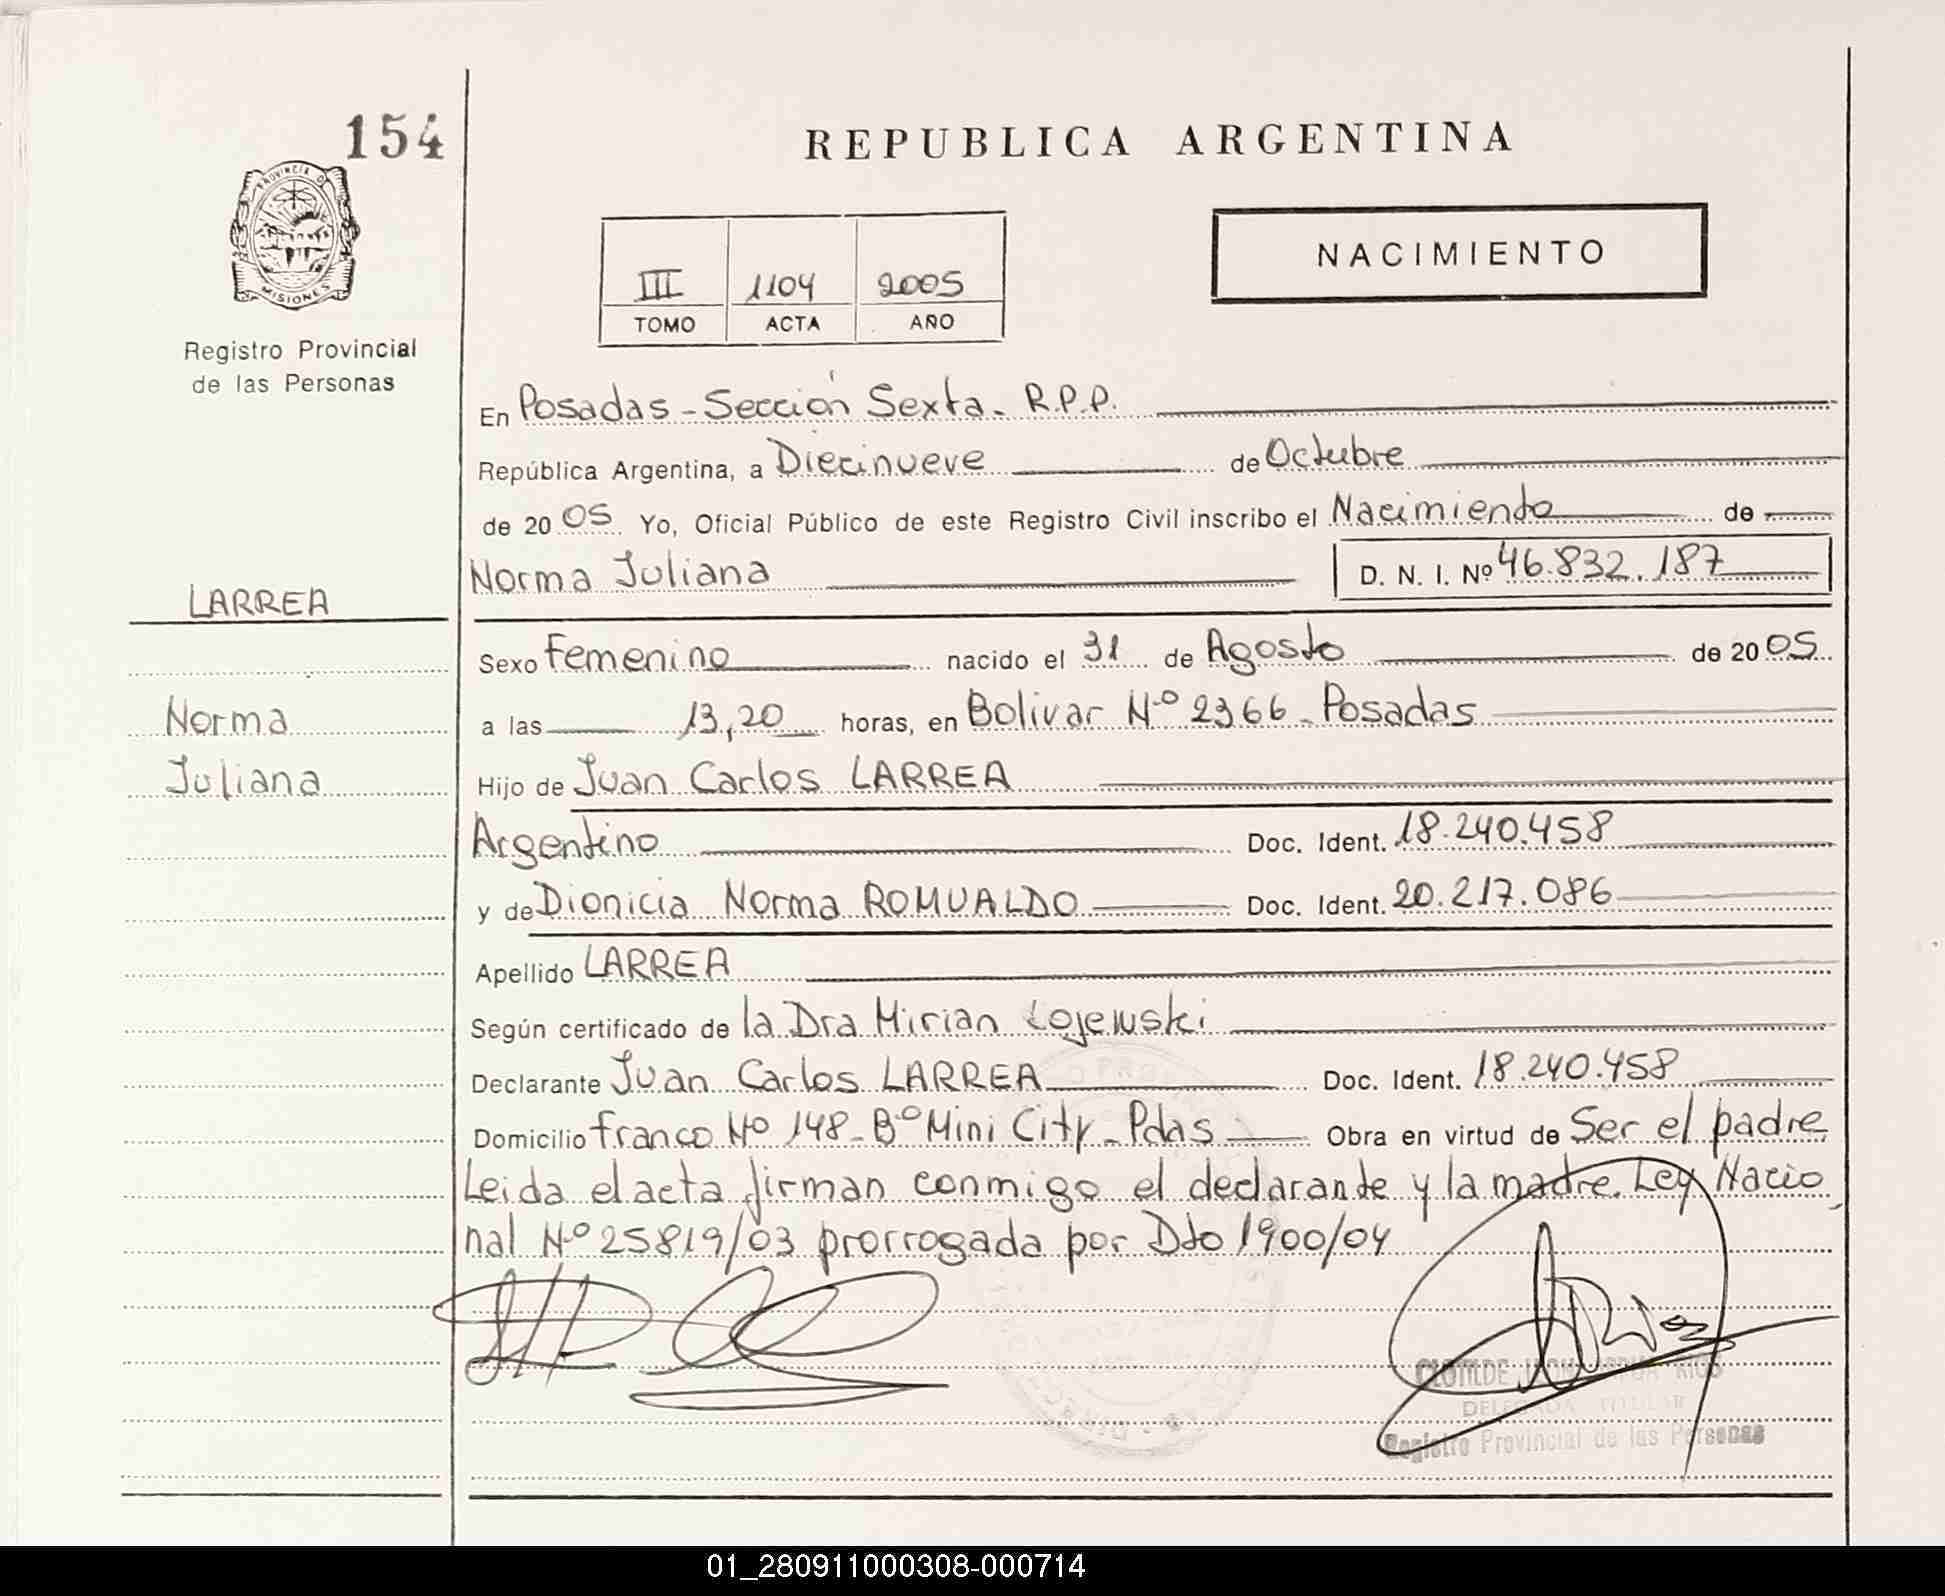 154
PROVINCIA DE
MISIONES
Registro Provincial
de las Personas
LARREA
Norma
Juliana
REPUBLICA ARGENTINA
NACIMIENTO
III 1104 2005
TOMO ACTA AÑO
En Posadas - Sección Sexta - R.P.P.
República Argentina, a Diecinueve de Octubre
de 2005 Yo, Oficial Público de este Registro Civil inscribo el Nacimiento de
Norma Juliana D. N. I. Nº 46.832.187
Sexo Femenino nacido el 31 de Agosto de 2005
a las 13,20 horas, en Bolivar Nº 2366 - Posadas
Hijo de Juan Carlos LARREA
Argentino Doc. Ident. 18.240.458
y de Dionicia Norma ROMUALDO Doc. Ident. 20.217.086
Apellido LARREA
Según certificado de la Dra Mirian Lojewski
Declarante Juan Carlos LARREA Doc. Ident. 18.240.458
Domicilio Franco Nº 148 - Bº Mini City - Pdas Obra en virtud de Ser el padre
Leida el acta firman conmigo el declarante y la madre. Ley Nacio
nal Nº 25819/03 prorrogada por Dto 1900/04
CLOTILDE RIOS
DELEGADA TITULAR
Registro Provincial de las Personas
01_280911000308-000714